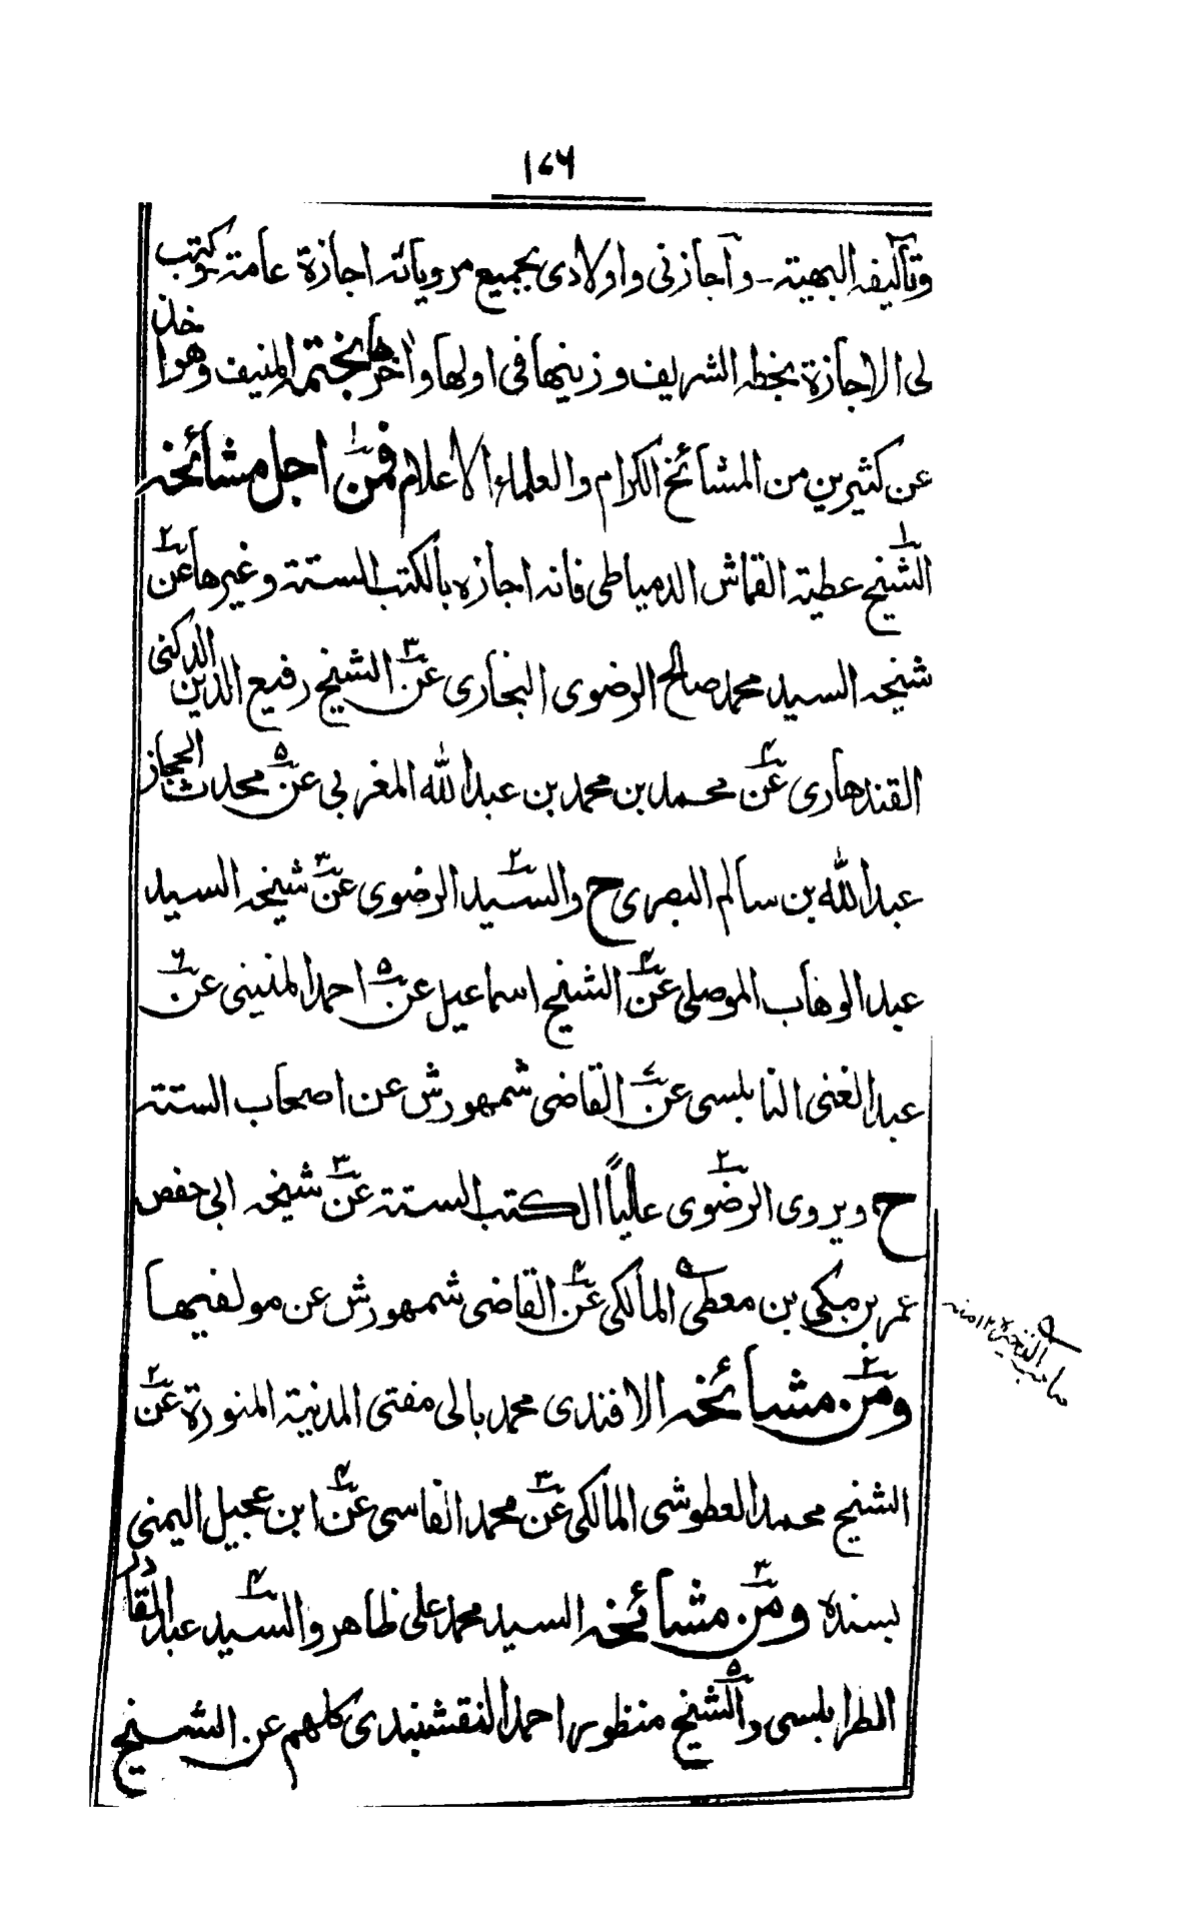 ١٧٦
وتآليفه البهية ـ وآجازنى واولادى بجميع مروياته اجازة عامة وكتب
لى الاجازة بخطه الشريف وزينها فى اولها واخرها بختمه المنيف وهو اخذ
عن كثيرين من المشائخ الكرام والعلماء الاعلام فمن ١ اجل مشائخه
الشيخ ١ عطية القماش الدمياطى فانه اجازه بالكتب الستة وغيرها عن ٢
شيخه السيد محمد صالح الرضوى البخارى عن ٣ الشيخ رفيع الدين الدكنى
القندهارى عن ٤ محمد بن محمد بن عبد الله المغربى عن ٥ محدث الحجاز
عبد الله بن سالم البصرى ح والسيد ٢ الرضوى عن ٣ شيخه السيد
عبد الوهاب الموصلى عن ٤ الشيخ اسماعيل عن ٥ احمد المنينى عن ٦
عبد الغنى النابلسى عن ٧ القاضى شمهورش عن اصحاب الستة
ح ويروى الرضوى ٢ عالياً الكتب الستة عن ٣ شيخه ابى حفص
عمر بن مكى بن معطى المالكى عن ٤ القاضى شمهورش عن مولفيها
صاحب الذخيرة ١٢ منه
ومن ٢ مشائخه الافندى محمد بالى مفتى المدنية المنورة عن ٢
الشيخ محمد العطوشى المالكى عن ٣ محمد الفاسى عن ٤ ابن عجيل اليمنى
بسنده ومن ٣ مشائخه السيد محمد على ظاهر والسيد ٤ عبد القادر
الطرابلسى والشيخ ٥ منظور احمد النقشبندى كلهم عن الشيخ